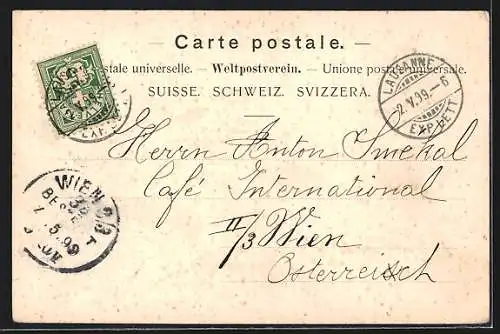 Carte postale.
postale universelle. – Weltpostverein. – Unione postale universale.
SUISSE. SCHWEIZ. SVIZZERA.
LAUSANNE
2.V.99.–6
EXP. LETT
Herrn Anton Smekal
Café International
II/3 Wien
Österreich
WIEN 2/3
BEST
5.99